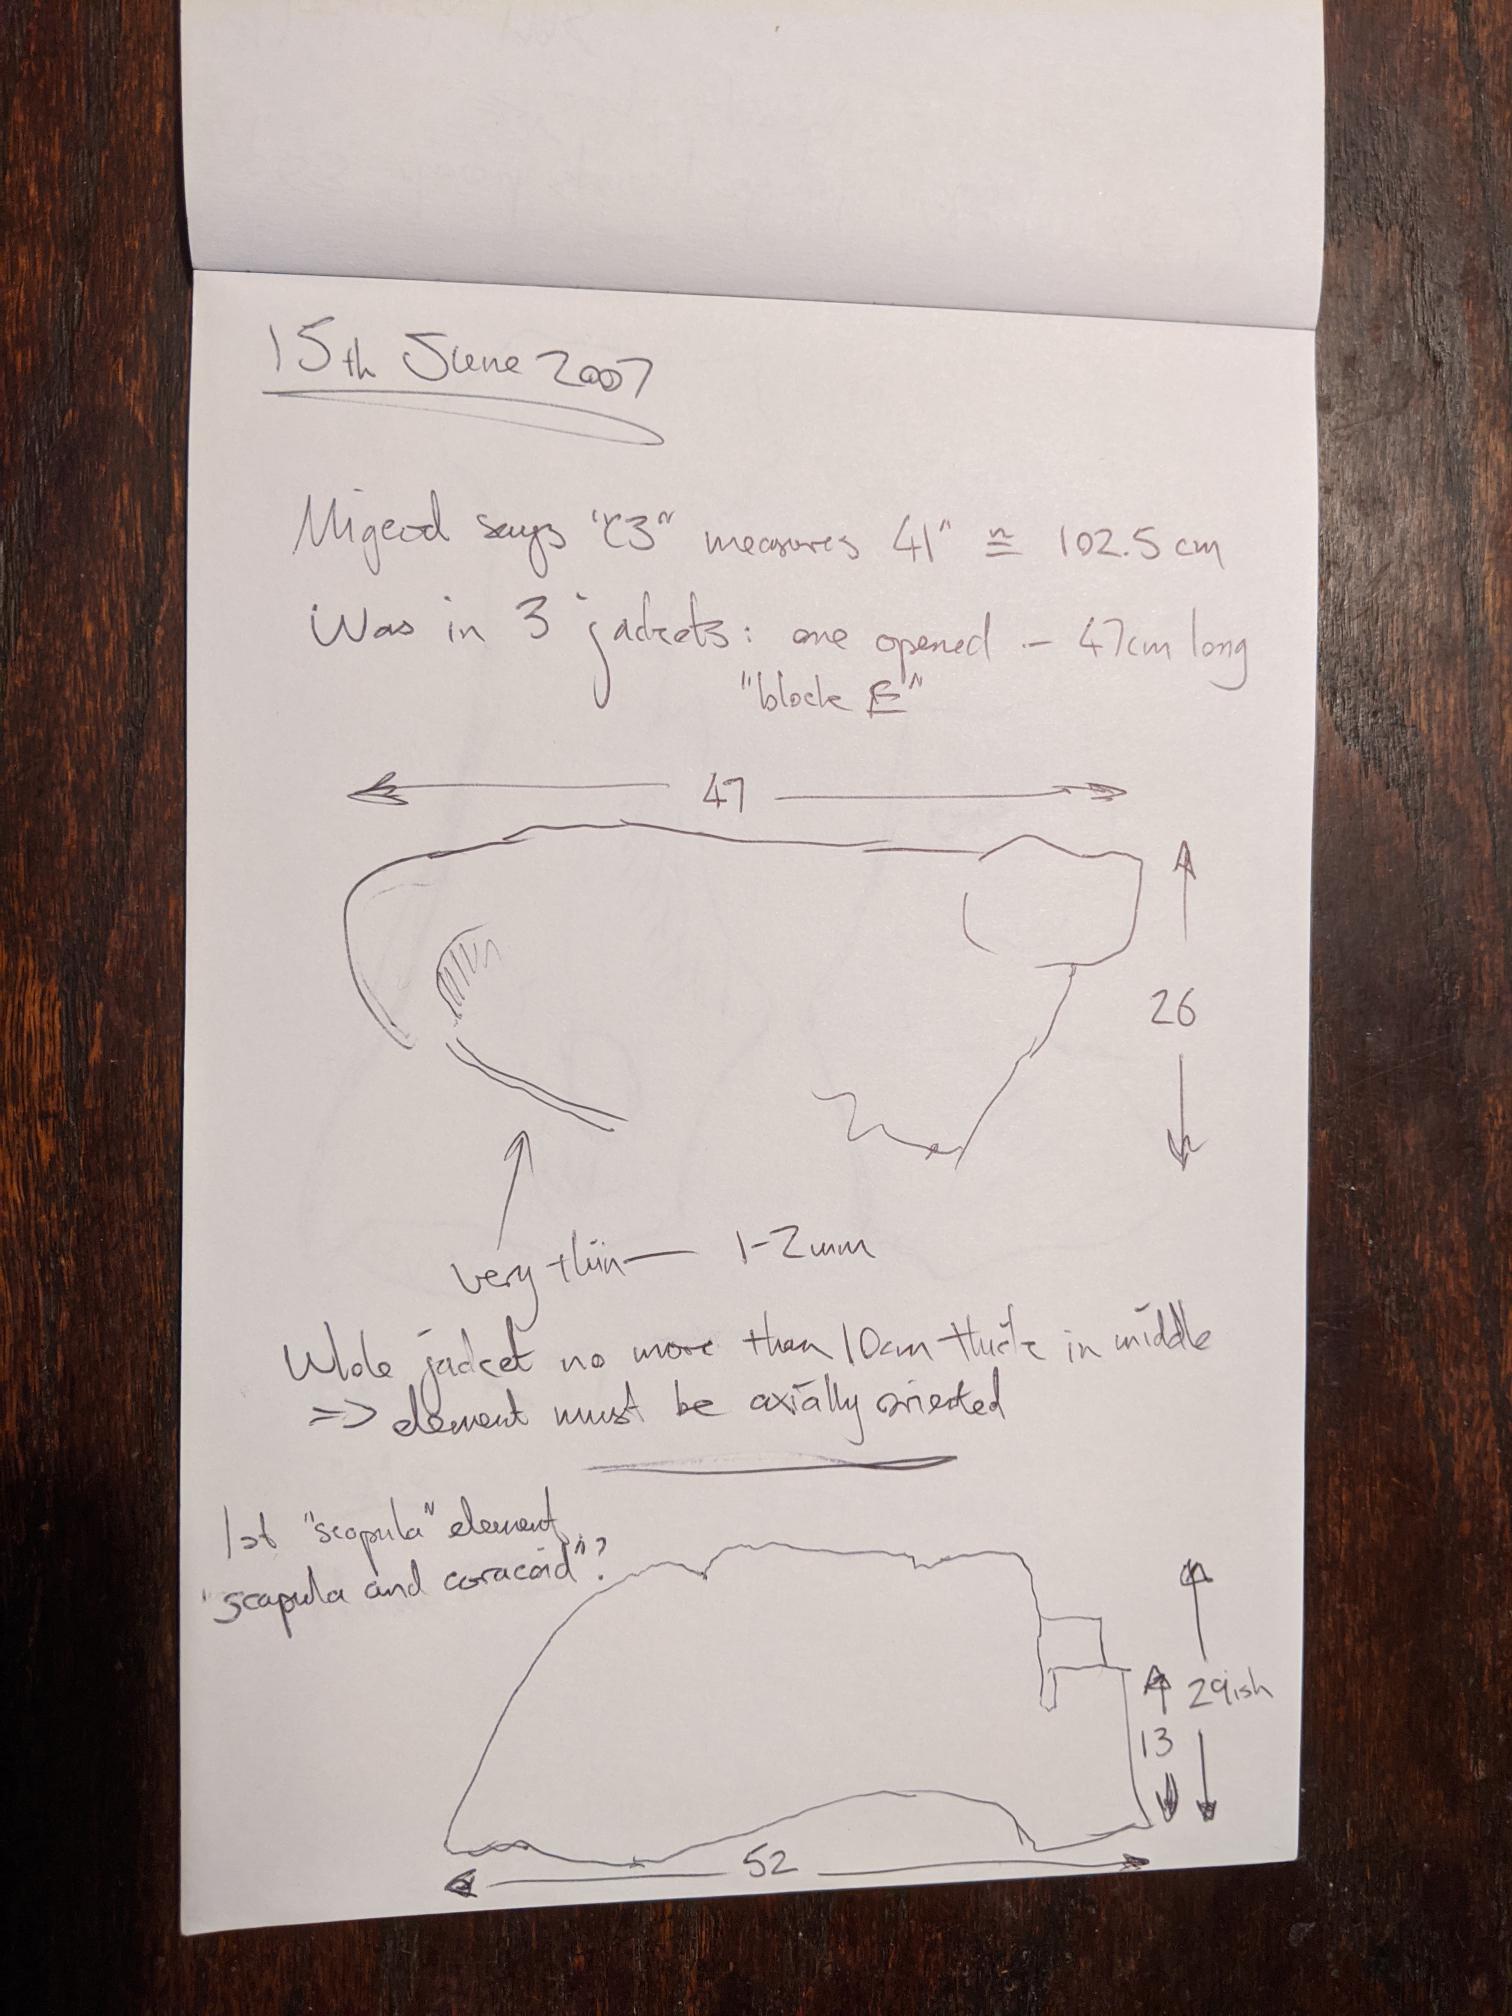 15th June 2007
Migeod says "C3" measures 41" ≅ 102.5 cm
Was in 3 jackets: one opened – 47cm long
"block E"
47
26
very thin — 1-2mm
Whole jacket no more than 10cm thick in middle
=> element must be axially oriented
1st "scapula" element
"scapula and coracoid"?
29ish
13
52